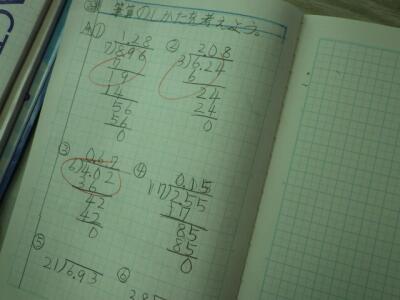 筆算のしかたを考えよう。
①
1.28
7)8.96
7
19
14
56
56
0
②
2.08
3)6.24
6
24
24
0
③
0.67
6)4.02
36
42
42
0
④
0.15
17)2.55
17
85
85
0
⑤
21)6.93
⑥